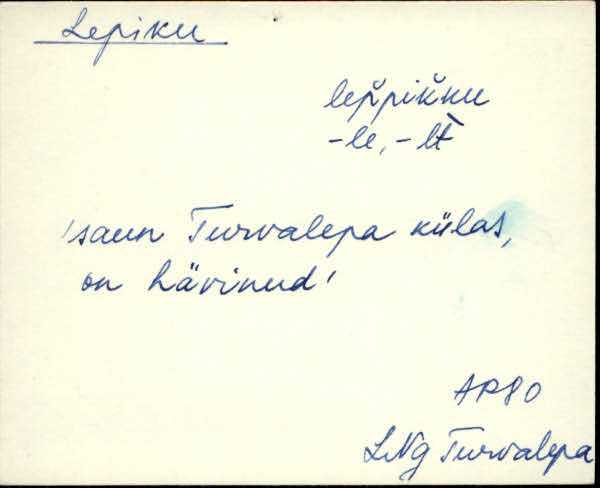 Lepiku
lep̌pik̆ku
-le, -lt̀
'saun Turvalepa külas,
on hävinud'
AP80
LNg Turvalepa